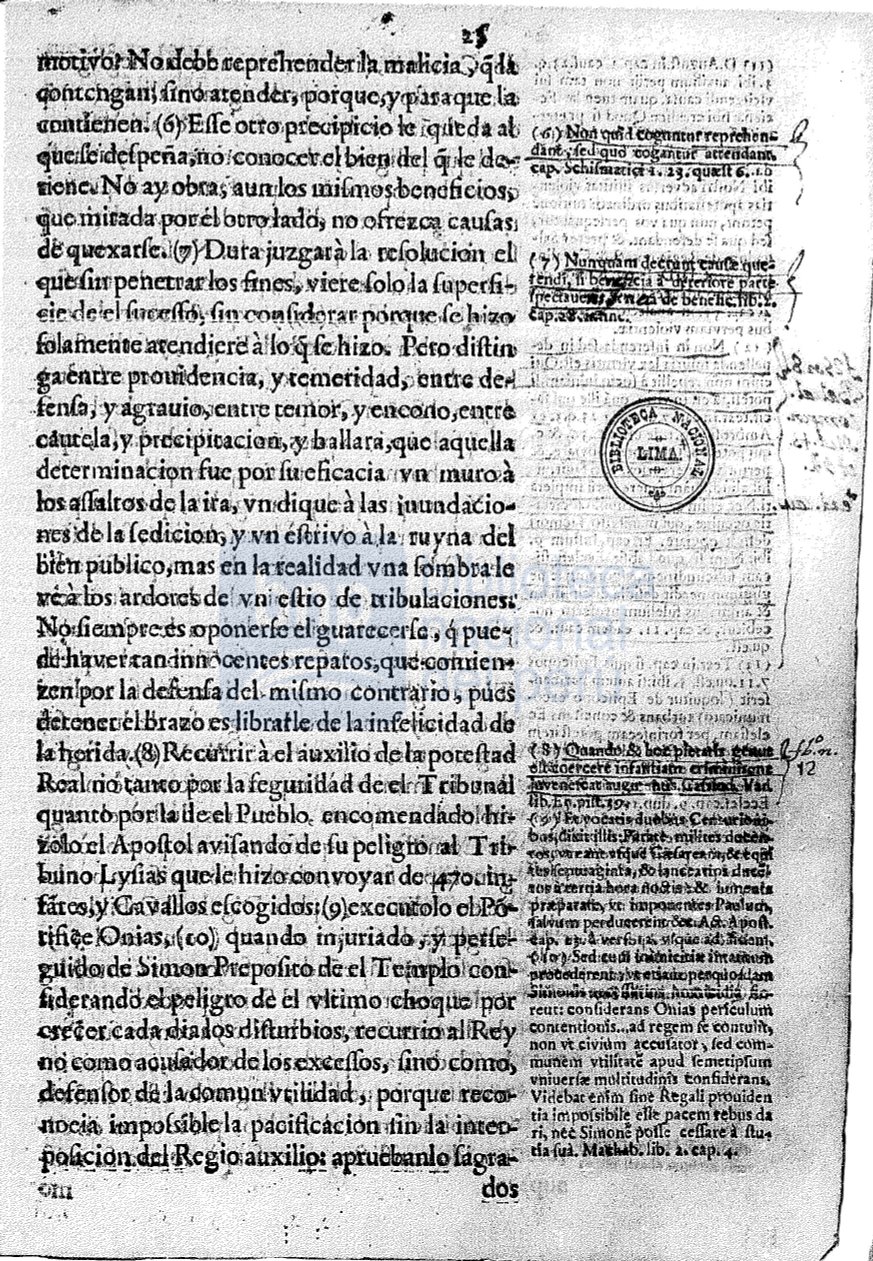 25
motivo? No debe reprehender la malicia, q̃ la
contengan, sino atender, porque, y para que la
contienen. (6) Esse otro precipicio le queda al
que se despeña, no conocer el bien del q̃ le de-
tiene. No ay obra, aun los mismos beneficios,
que mirada por el otro lado, no ofrezca causas
de quexarse. (7) Dura juzgarà la resolucion el
que sin penetrar los fines, viere solo la superfi-
cie de el sucesso, sin considerar porque se hizo
solamente atendiere à lo q̃ se hizo. Pero distin
ga entre prouidencia, y temeridad, entre de-
fensa, y agrauio, entre temor, y encono, entre
cautela, y precipitacion, y hallara, que aquella
determinacion fue por su eficacia vn muro à
los assaltos de la ira, vn dique à las inundacio-
nes de la sedicion, y vn estrivo à la ruyna del
bien publico, mas en la realidad vna sombra le
ve à los ardores de vn estio de tribulaciones.
No siempre es oponerse el guarecerse, q̃ pue-
de haver tan innocentes reparos, que comien-
zen por la defensa del mismo contrario, pues
detener el brazo es librarle de la infelicidad de
la herida. (8) Recurrir à el auxilio de la potestad
Real no tanto por la seguridad de el Tribunal
quanto por la de el Pueblo encomendado hi-
zolo el Apostol avisando de su peligro al Tri-
buno Lysias que le hizo convoyar de 470. in-
fãtes, y Cavallos escogidos: (9) executolo el Põ-
tifice Onias, (10) quando injuriado, y perse-
guido de Simon Preposito de el Templo con-
siderando el peligro de el vltimo choque por
crecer cada dia los disturbios, recurrio al Rey
no como acusador de los excessos, sino como
defensor de la comun vtilidad, porque reco-
nocia impossible la pacificacion sin la inter-
posicion del Regio auxilio: apruebanlo sagra-
dos
(6) Non quòd coguntur reprehen-
dant, sed quo cogantur attendant.
cap. Schismatici 1. 23. quæst 6.
(7) Nunquam deerunt causæ que-
rendi, si beneficia à deteriore parte
spectaueris Seneca de benefic. lib. 2.
cap. 28. in finc.
BIBLIOTECA NACIONAL
LIMA
(8) Quando & hoc pietatis genus
est coercere
lib. 1. epist.
12
(9) Et vocatis duobus Centurioni-
bus, dixit illis: Parate milites ducen-
tos, vt eant vsque Cæsaream, & equi
tes septuaginta, & lancearios ducen-
tos à tertia hora noctis: & iumenta
præparate, vt imponentes Paulum,
salvum perducerent &c. Act. Apost.
cap. 23. à vers.
(10) Sed cum inimicitiæ in tantum
procederent, vt etiam per quosdam
Simonis necessarios homicidia fie-
rent: considerans Onias periculum
contentionis.. ad regem se contulit,
non vt civium accusator, sed com-
munem vtilitatē apud semetipsum
vniversæ moltitudinis considerans,
Videbat enim sine Regali prouiden
tia impossibile esse pacem rebus da
ri, nec Simonē posse cessare à stu-
tia suâ. Machab. lib. 2. cap. 4.
biblioteca
nacional
del perú